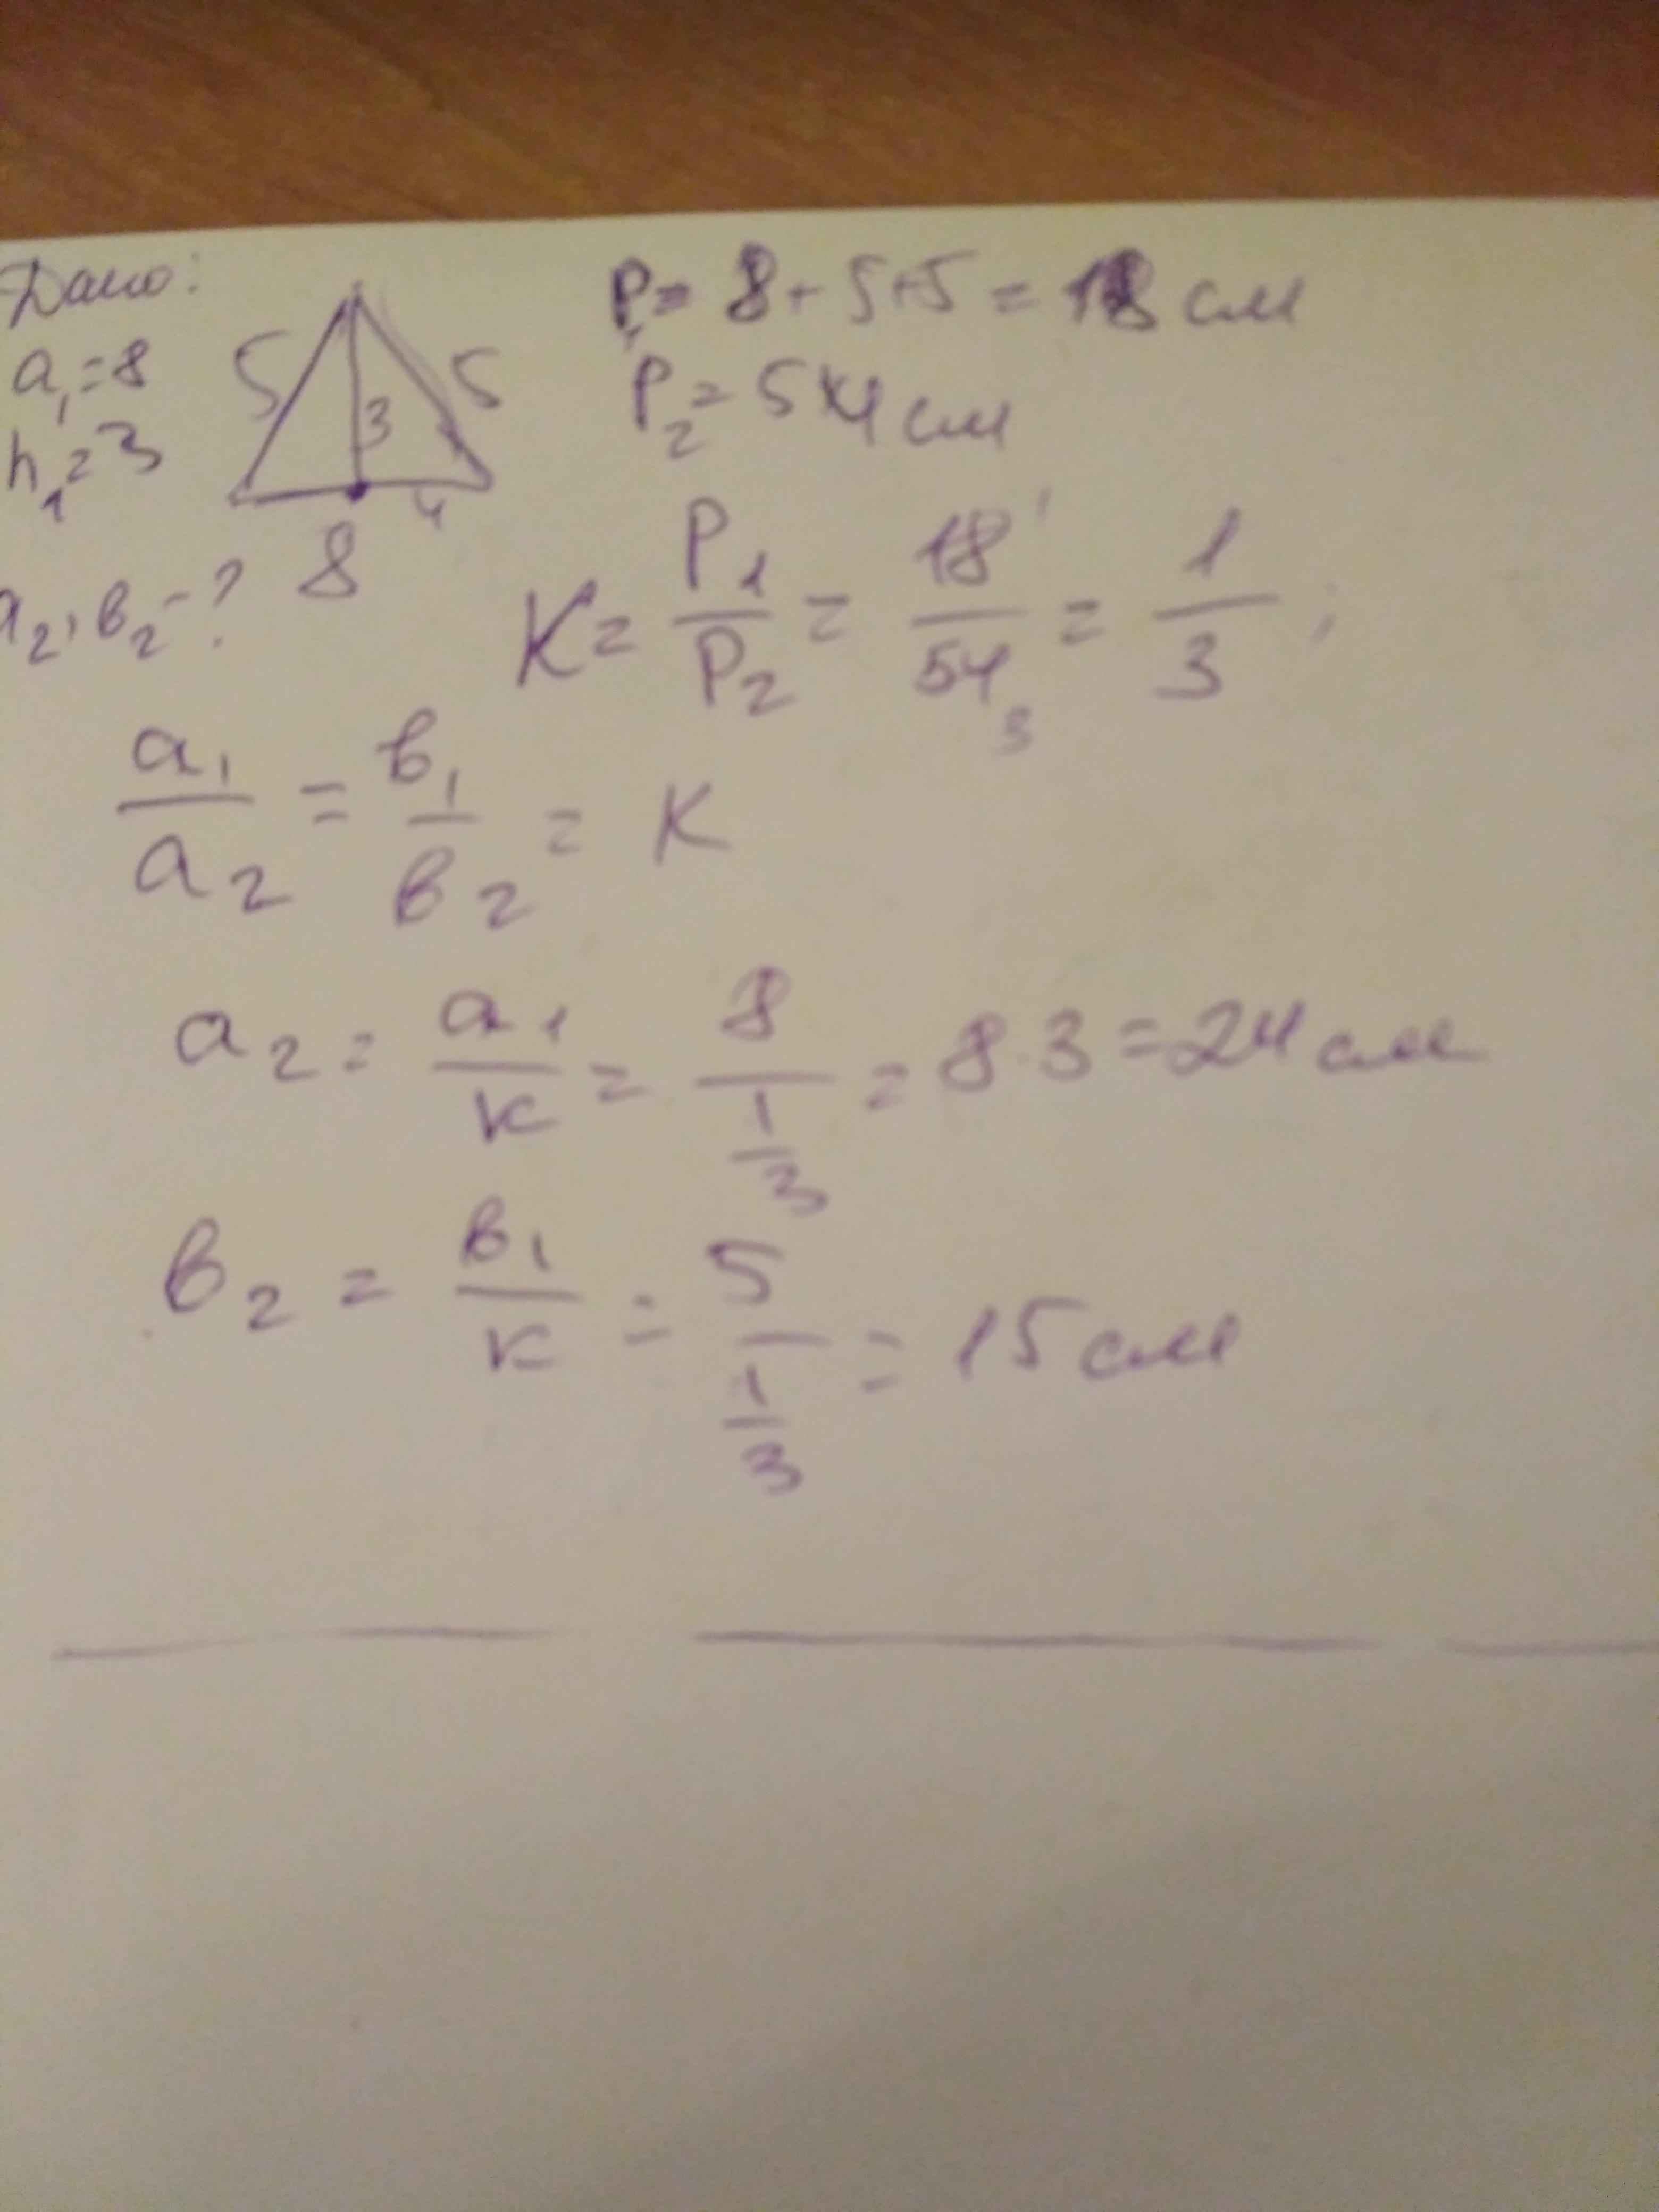 Дано:
a₁=8
h₁=3
a₂, в₂-?
5 5
3
4
8
P₁= 8+5+5=18 см
P₂=54 см
K= P₁/P₂ = 18/54 = 1/3 ;
1
3
a₁/a₂ = в₁/в₂ = K
a₂= a₁/к = 8/(1/3) = 8·3=24 см
в₂ = в₁/к = 5/(1/3) = 15 см